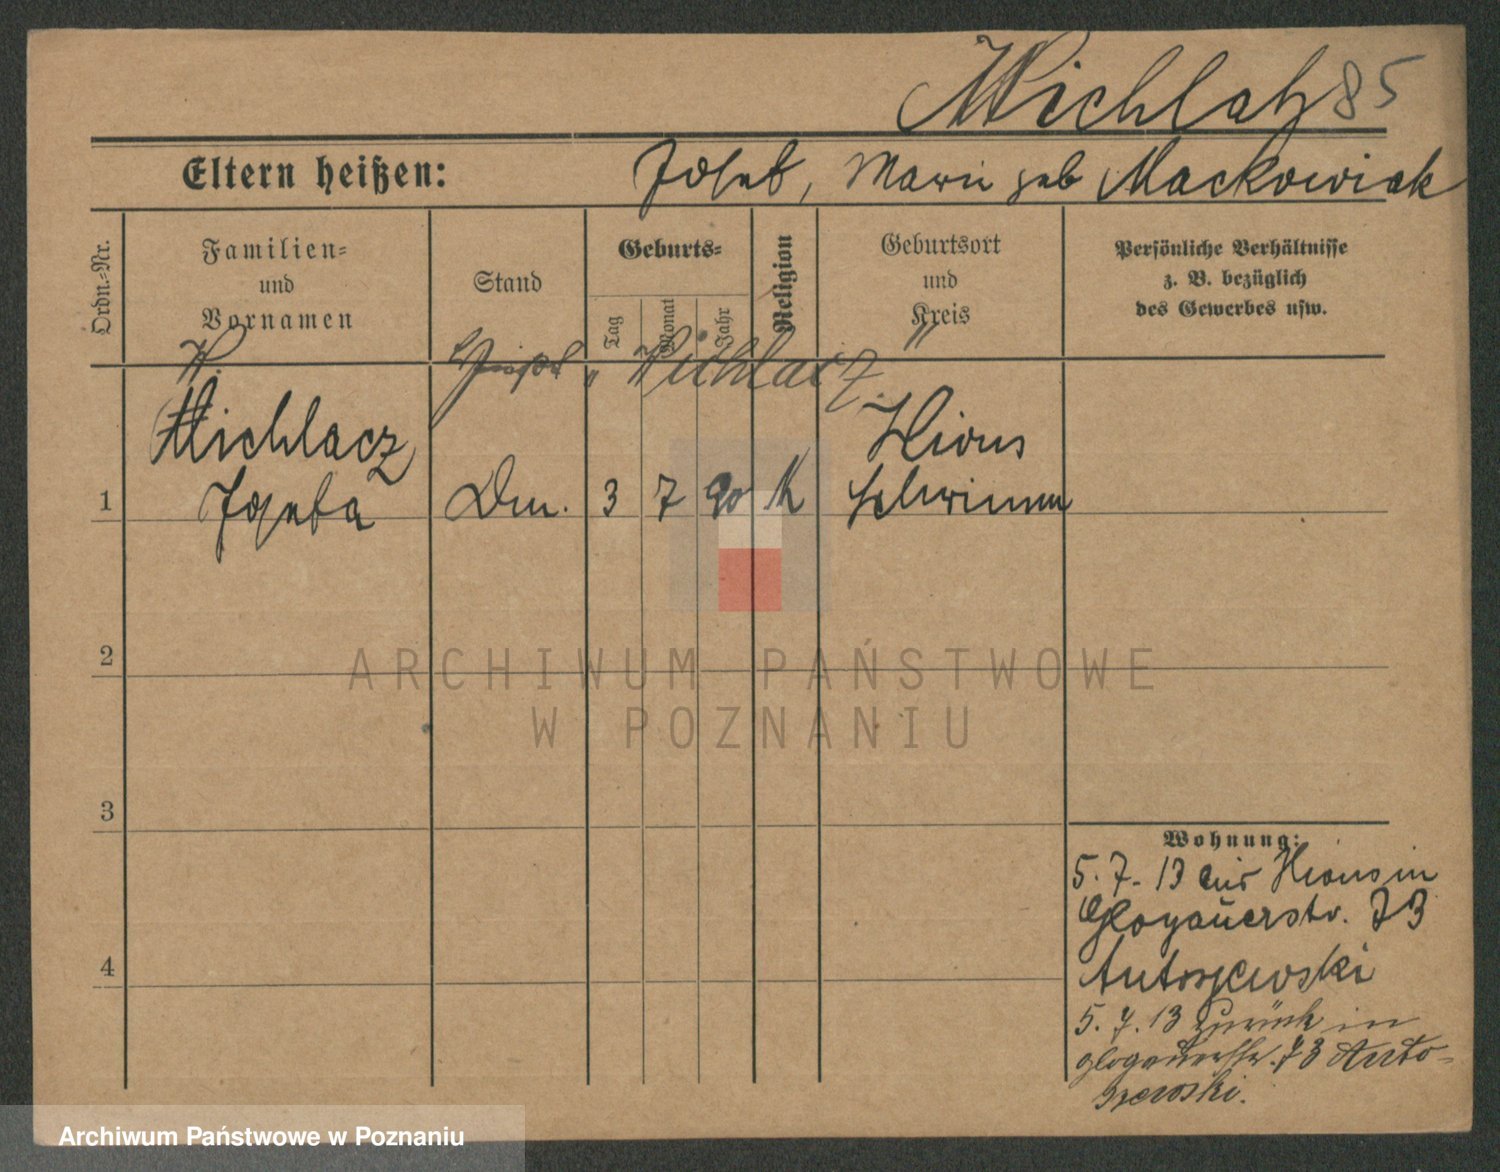 Michlatz 85
Eltern heißen: Josef, Marie geb Mackowiak
Ordn.-Nr.
Familien-
und
Vornamen
Stand
Geburts-
Tag
Monat
Jahr
Religion
Geburtsort
und
Kreis
Persönliche Verhältnisse
z. B. bezüglich
des Gewerbes usw.
" Michlacz "
1
Michlacz
Josefa
3 7 90 K
Xions
Schrimm
2
3
4
Wohnung:
5. 7. 13 aus Xions in
Glogauerstr. 73
Antoszewski
5. 7. 13 zurück in
Glogauerstr. 73 Anto-
szewski.
ARCHIWUM PAŃSTWOWE
W POZNANIU
Archiwum Państwowe w Poznaniu